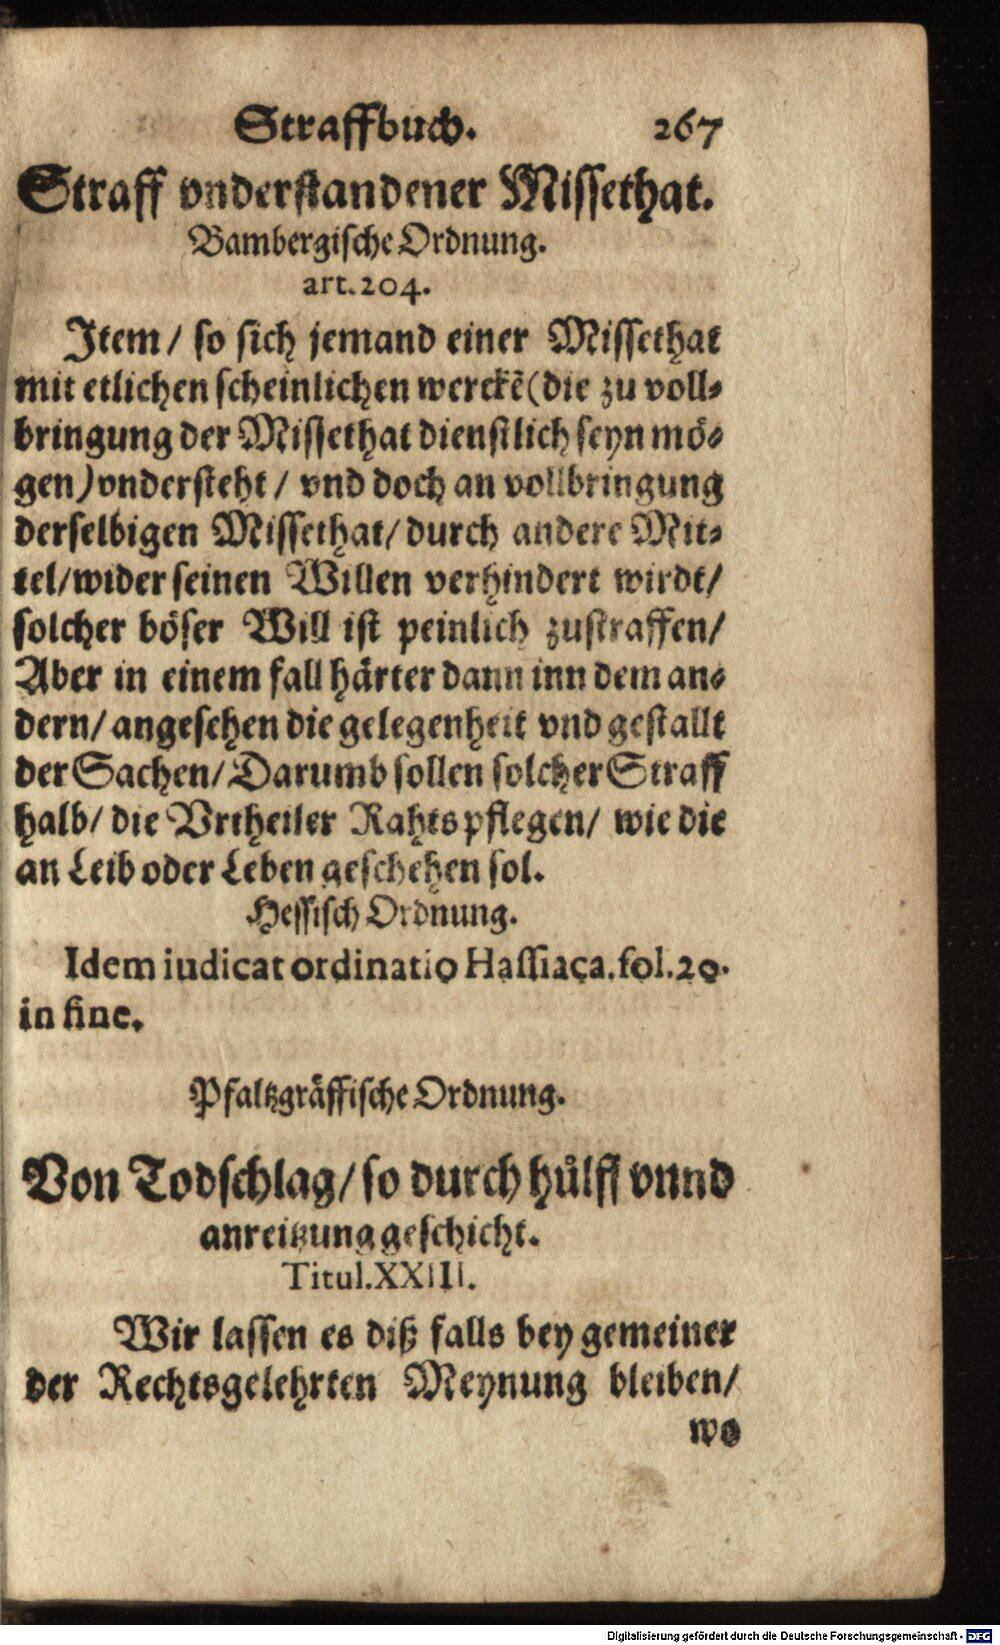 Straffbuch. 267
Straff vnderstandener Missethat.
Bambergische Ordnung.
art. 204.
Item / so sich jemand einer Missethat
mit etlichen scheinlichen werckẽ (die zu voll-
bringung der Missethat dienstlich seyn mö-
gen) vndersteht / vnd doch an vollbringung
derselbigen Missethat / durch andere Mit-
tel / wider seinen Willen verhindert wirdt /
solcher böser Will ist peinlich zustraffen /
Aber in einem fall härter dann inn dem an-
dern / angesehen die gelegenheit vnd gestallt
der Sachen / Darumb sollen solcher Straff
halb / die Vrtheiler Rahts pflegen / wie die
an Leib oder Leben geschehen sol.
Hessisch Ordnung.
Idem iudicat ordinatio Hassiaca. fol. 20.
in fine.
Pfaltzgräffische Ordnung.
Von Todschlag / so durch hülff vnnd
anreitzung geschicht.
Titul. XXIII.
Wir lassen es diß falls bey gemeiner
der Rechtsgelehrten Meynung bleiben /
wo
Digitalisierung gefördert durch die Deutsche Forschungsgemeinschaft - DFG